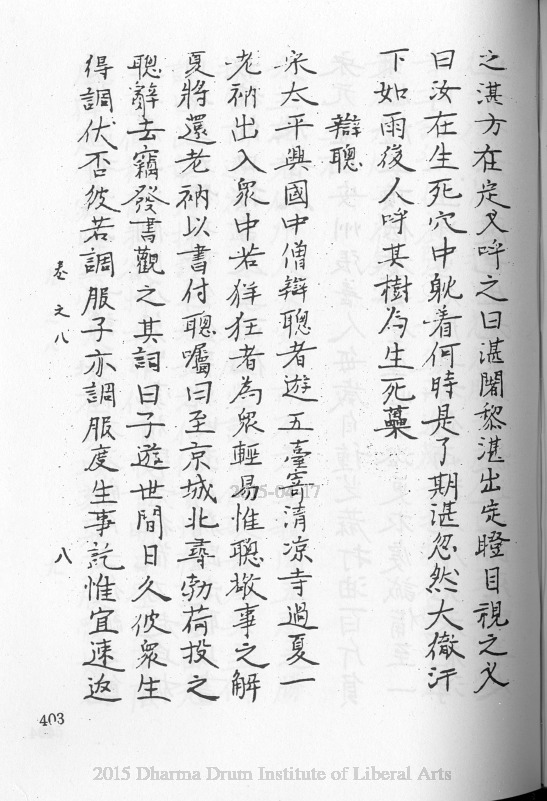 之湛方在定叉呼之曰湛闍黎湛出定瞪目視之义
曰汝在生死穴中躭着何時是了期湛忽然大徹汗
下如雨後人呼其樹為生死蘽
辯聰
宋太平興國中僧辯聰者遊五臺寄清凉寺過夏一
老衲出入衆中若佯狂者為衆輕易惟聰敬事之解
夏將還老衲以書付聰囑曰至京城北尋勃荷投之
聰辭去竊發書觀之其詞曰子遊世間日久彼衆生
得調伏否彼若調服子亦調服度生事訖惟宜速返
卷 文八
八
403
2015-04-17
2015 Dharma Drum Institute of Liberal Arts